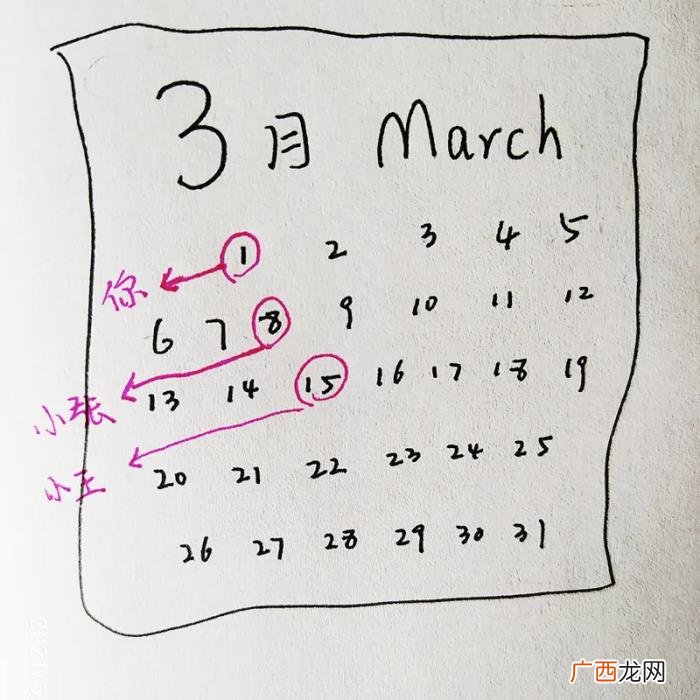 3月 March
1 2 3 4 5
你
6 7 8 9 10 11 12
小张
13 14 15 16 17 18 19
小王
20 21 22 23 24 25
26 27 28 29 30 31
2021/6
广西龙网